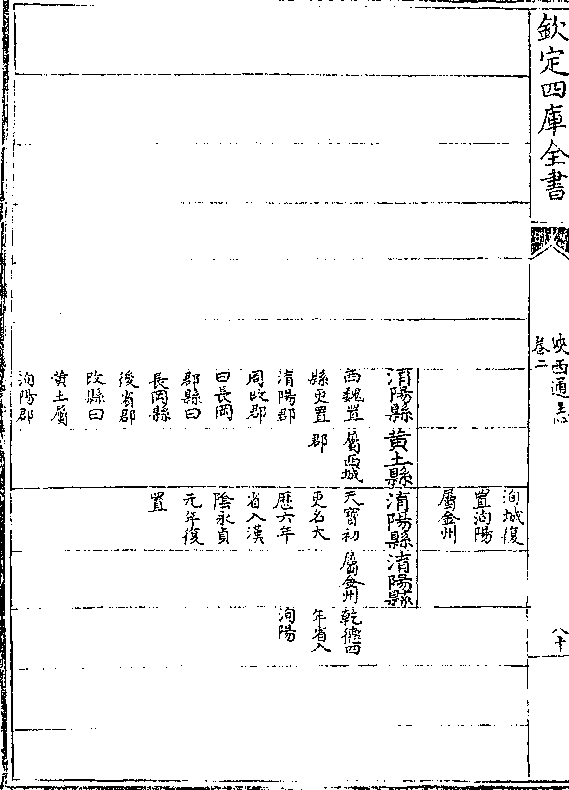 欽定四庫全書
陜西通志
卷二
八十
洵城復
置洵陽
屬金州
淯陽縣
西魏置
縣更置
淯陽郡
周改郡
曰長岡
郡縣曰
長岡縣
後省郡
改縣曰
黃土屬
洵陽郡
黃土縣
屬西城
郡
淯陽縣
天寶初
更名大
厯六年
省入漢
隂永貞
元年復
置
淯陽縣
屬金州
乾德四
年省入
洵陽